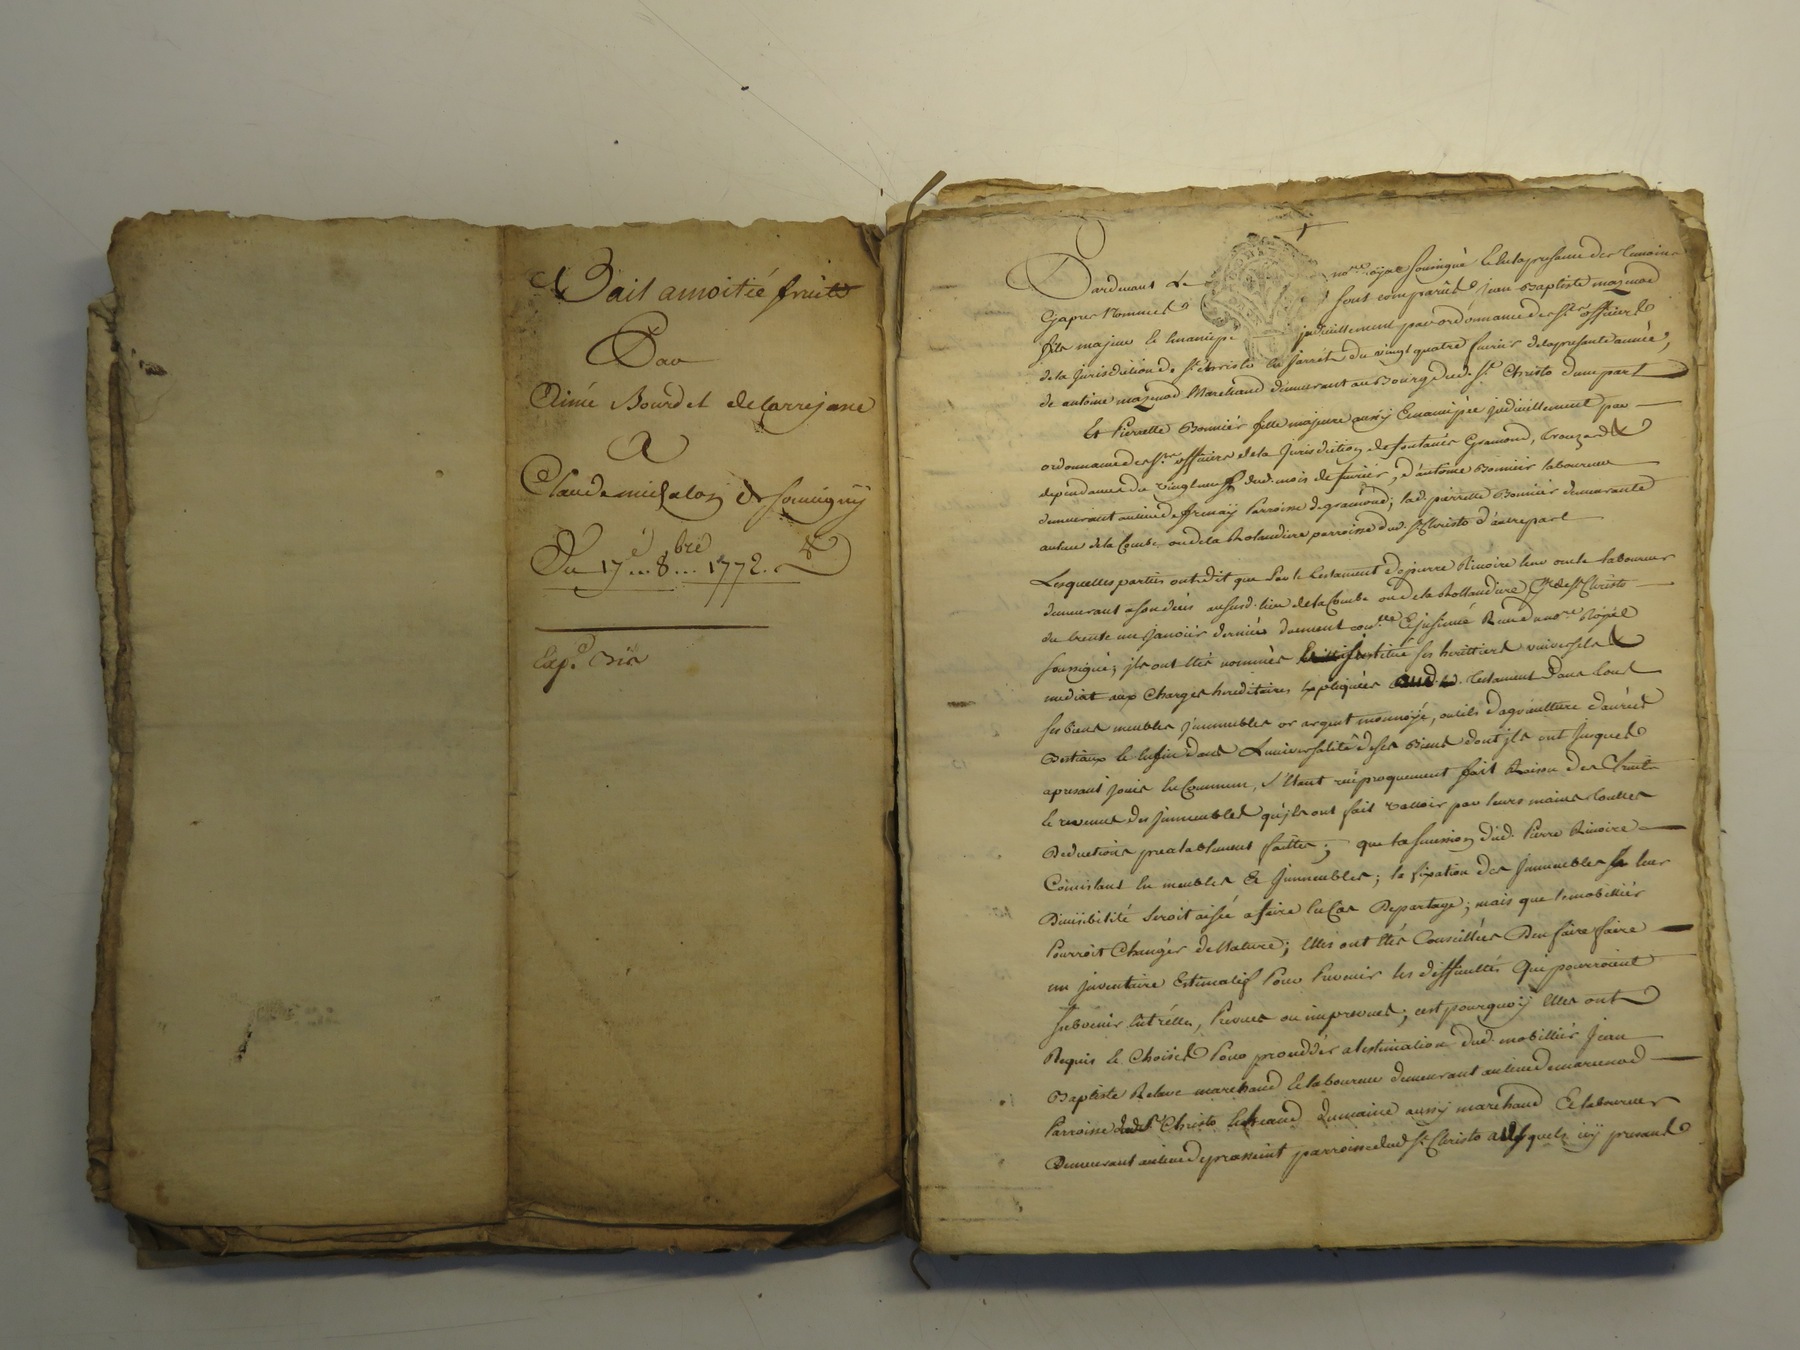 Bail amoitié fruits
Par
Aimé Bourdet delarrejasse
A
Claude michalon de
Du 17e 8bre 1772.
Exp.e
Pardevant Le no.re royal soussigné Et En la presence des temoins
Cyapres Nommés sont comparus Jean Baptiste mazenod
fils majeur Et Emancipé judiciellement par ordonnance des Srs officiers
de la jurisdiction de St Christo En Jarrêt du vingt quatre fevrier de la presente année,
de antoine mazenod Marchand demeurant au Bourg dud. St Christo d'une part
Et Pierrette Bonnier fille majeure aussy Emancipée judiciellement par
ordonnance des Srs officiers de la Jurisdiction de fontanès Gramond,
dependances du vingt neuf dud. mois de fevrier, d'antoine Bonnier laboureur
demeurant au lieu de Parroisse de gramond; lad. pierrette Bonnier demeurante
au lieu de la Combe ou de la Rolandiere parroisse dud. St Christo d'autre part
Lesquelles parties ont dit que par le testament de pierre Rimoire leur oncle laboureur
demeurant a son déces au susd. lieu de la Combe ou de la Rollandiere de St Christo
du trente un janvier dernier duement Royal
soussigné; ils ont étés nommés institué ses heritiers universels
mediat aux Charges hereditaires Expliquées aud. testament Dans tous
ses biens meubles Immeubles or argent monnoyé, outils d'agriculture danrées
Bestiaux Et Enfin dans L'universalité de ses Biens dont ils ont Jusques
apresant jouis En Commun, s'Etant reciproquement fait Raison des fruits
Et revenus des Immeubles qu'ils ont fait valloir par leurs mains toutes
Deductions prealablement faittes; que la sucession dud. Pierre Rimoire
Consistant En meubles Et Immeubles; la fixation des Immeubles leur
Divisibilité seroit aisée a faire En Cas De partage; mais que le mobillier
Pourroit Changer de Nature; Elles ont Etés Conseillées D'en faire faire
un Inventaire Estimatif Pour Prevenir les difficultés Qui pourroient
subvenir Entr'elles, Prevues ou imprevues; c'est pourquoy Elles ont
Requis Et Choisies Pour proceder a l'estimation dud. mobillier Jean
Baptiste Relave marchand Et laboureur demeurant au lieu de marcenod
Parroisse dud. St Christo Et Dumaine aussy marchand Et laboureur
Demeurant au lieu de parroisse dud St Christo a Lesquels icy presents